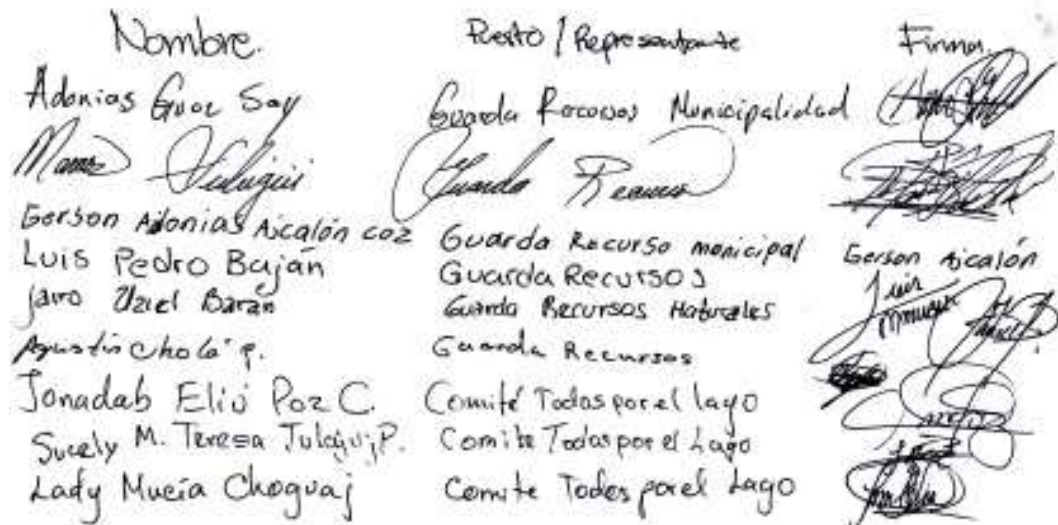 Nombre. Puesto / Representante Firma.
Adonias Guoz Say Guarda Recursos Municipalidad
Guarda Recursos
Gerson Adonias Aicalón coz Guarda Recurso municipal Gerson Aicalón
Luis Pedro Baján Guarda Recursos Luis
Jairo Uziel Barán Guarda Recursos Naturales
Agustín Cholá P. Guarda Recursos
Jonadab Eliú Poz C. Comité Todos por el lago
Sucely M. Teresa P. Comite Todos por el Lago
Lady Mucía Choguaj Comite Todos por el Lago